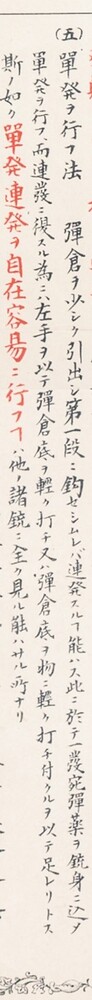 (五) 單発ヲ行フ法 彈倉ヲ少シク引出シ第一段ニ鈎セシムレバ連發スルヿ能ハス此ニ於テ一發宛彈藥ヲ銃身ニ込メ
單発ヲ行フ、而連發ニ復スル為ニハ左手ヲ以テ彈倉底ヲ輕ク打チ又ハ彈倉底ヲ物ニ輕ク打チ付クルヲ以テ足レリトス
斯ノ如ク單発連発ヲ自在容易ニ行フヿハ他ノ諸銃ニ全ク見ル能ハサル所ナリ